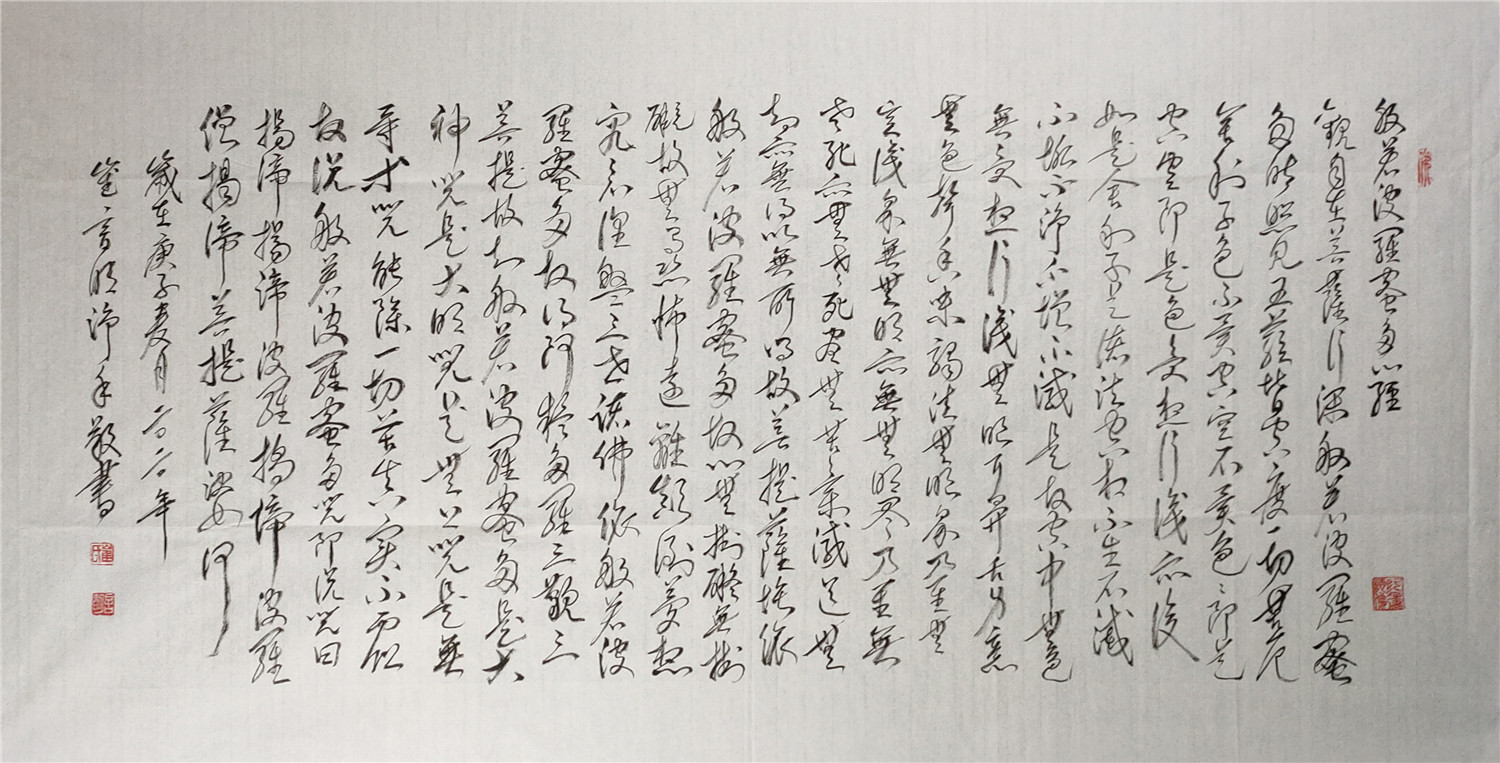 般若波羅蜜多心經
觀自在菩薩行深般若波羅蜜
多時照見五蘊皆空度一切苦厄
舍利子色不異空空不異色色即是
空空即是色受想行識亦復
如是舍利子是諸法空相不生不滅
不垢不淨不增不減是故空中無色
無受想行識無眼耳鼻舌身意
無色聲香味觸法無眼界乃至無
意識界無無明亦無無明盡乃至無
老死亦無老死盡無苦集滅道無
智亦無得以無所得故菩提薩埵依
般若波羅蜜多故心無掛礙無掛
礙故無有恐怖遠離顛倒夢想
究竟涅槃三世諸佛依般若波
羅蜜多故得阿耨多羅三藐三
菩提故知般若波羅蜜多是大
神咒是大明咒是無上咒是無
等等咒能除一切苦真實不虛
故說般若波羅蜜多咒即說咒曰
揭諦揭諦波羅揭諦波羅
僧揭諦菩提薩婆訶
歲在庚子夏月二〇二〇年
崔言明淨手敬書